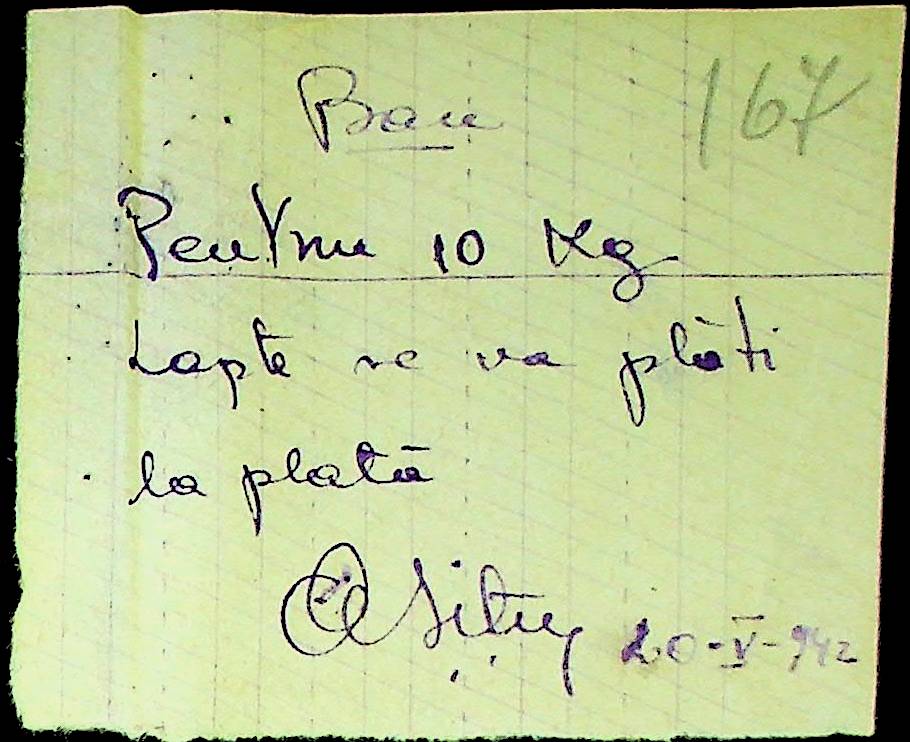 Bon 167
Pentru 10 Kg
Lapte se va plăti
la plată
20-V-942